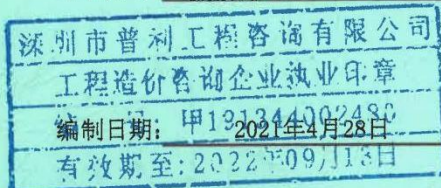 深圳市普利工程咨询有限公司
工程造价咨询企业执业印章
编制日期： 2021年4月28日
有效期至:2022年09月13日